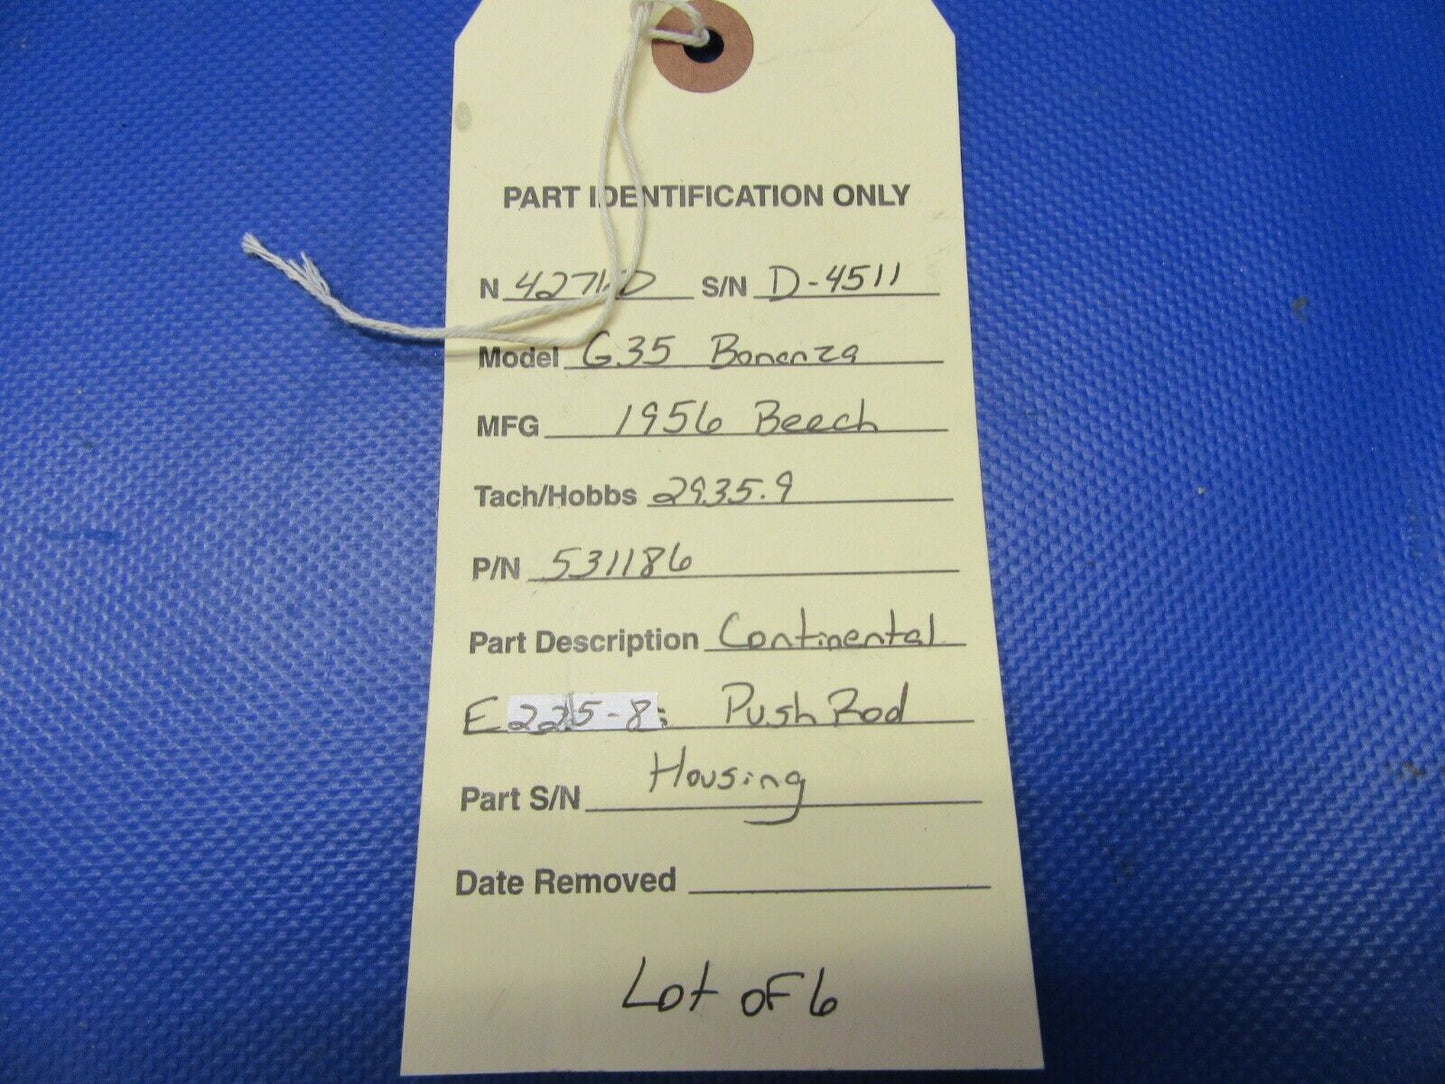 PART IDENTIFICATION ONLY
N S/N D-4511
Model G35 Bonanza
MFG 1956 Beech
Tach/Hobbs 2935.9
P/N 531186
Part Description Continental
E225-8; Push Rod
Housing
Part S/N
Date Removed
Lot of 6